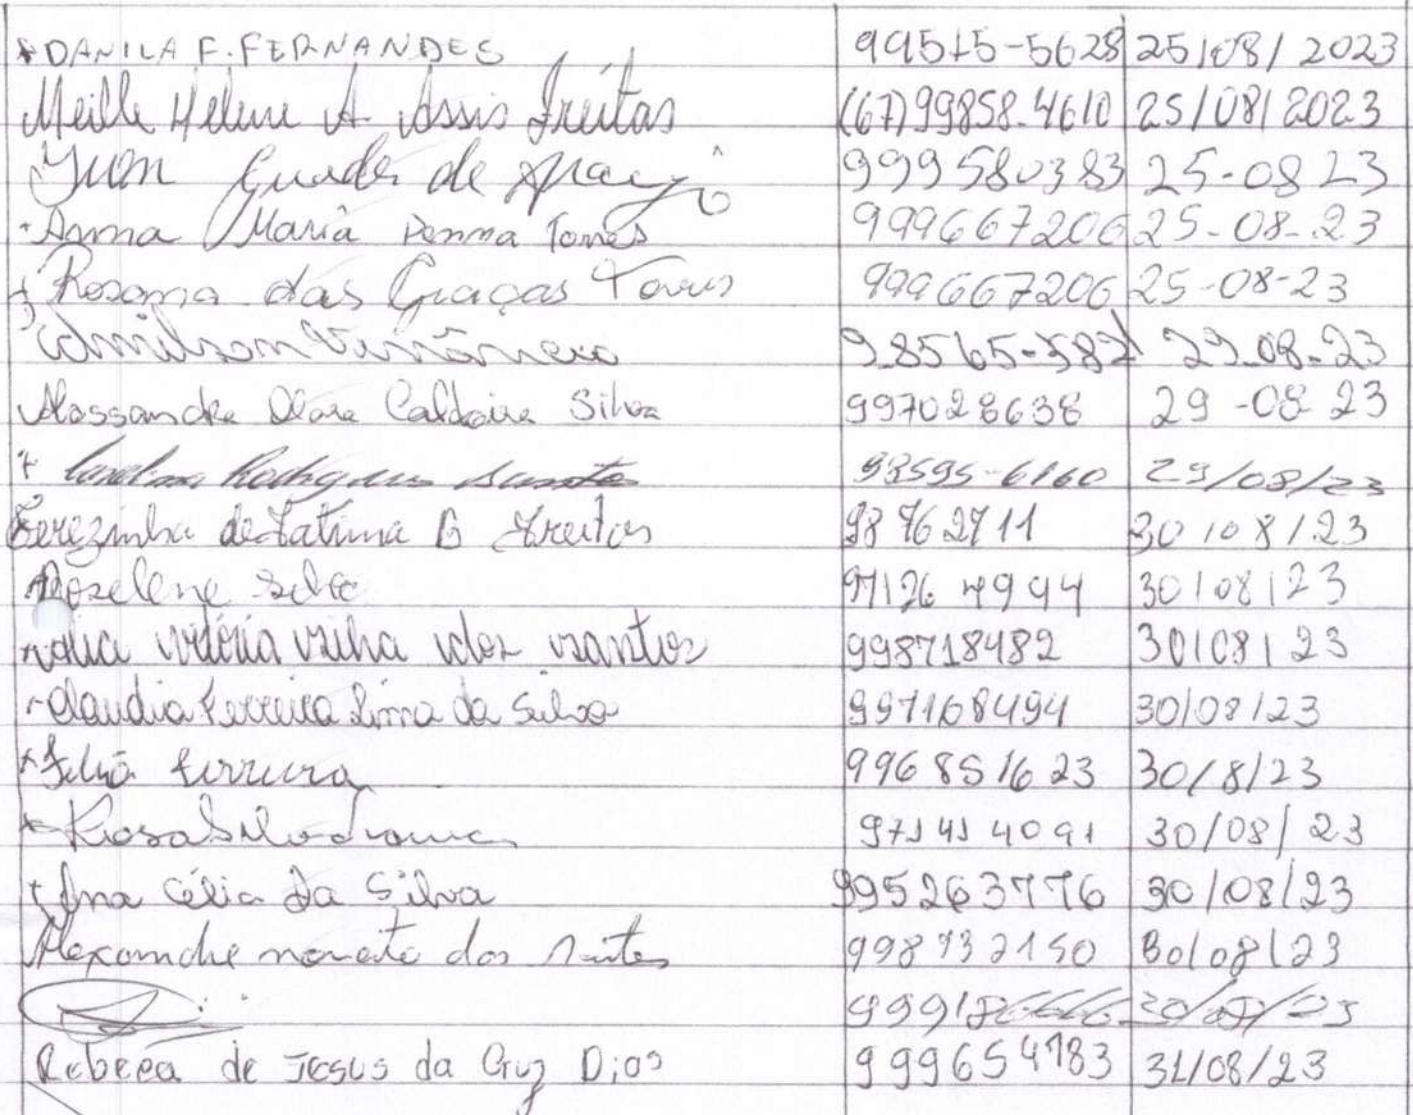 DANILA F. FERNANDES 99515-5628 25/08/2023
Meille Helene A Assis Freitas (67)99858-4610 25/08/2023
Guedes de Araujo 999580383 25-08 23
Anna Maria Penna Torres 999667206 25-08-23
Rosana das Graças Torres 999667206 25-08-23
29-08-23
Alessandra Clara Caldeira Silva 997028638 29-08 23
Rodrigues Santos 98595-6160 29/08/23
Terezinha de Fatima B Freitas 98762711 30/08/23
Roselene Silva 97126 4994 30/08/23
vitória silha dos santos 998718482 30/08/23
Claudia Ferreira Lima da Silva 997168494 30/08/23
Ferreira 996851623 30/8/23
Rosa 971414091 30/08/23
Ana Célia da Silva 995263776 30/08/23
Alexandre nonato dos Santos 998732150 30/08/23
30/08/23
Rebeca de Jesus da Cruz Dias 999654783 31/08/23